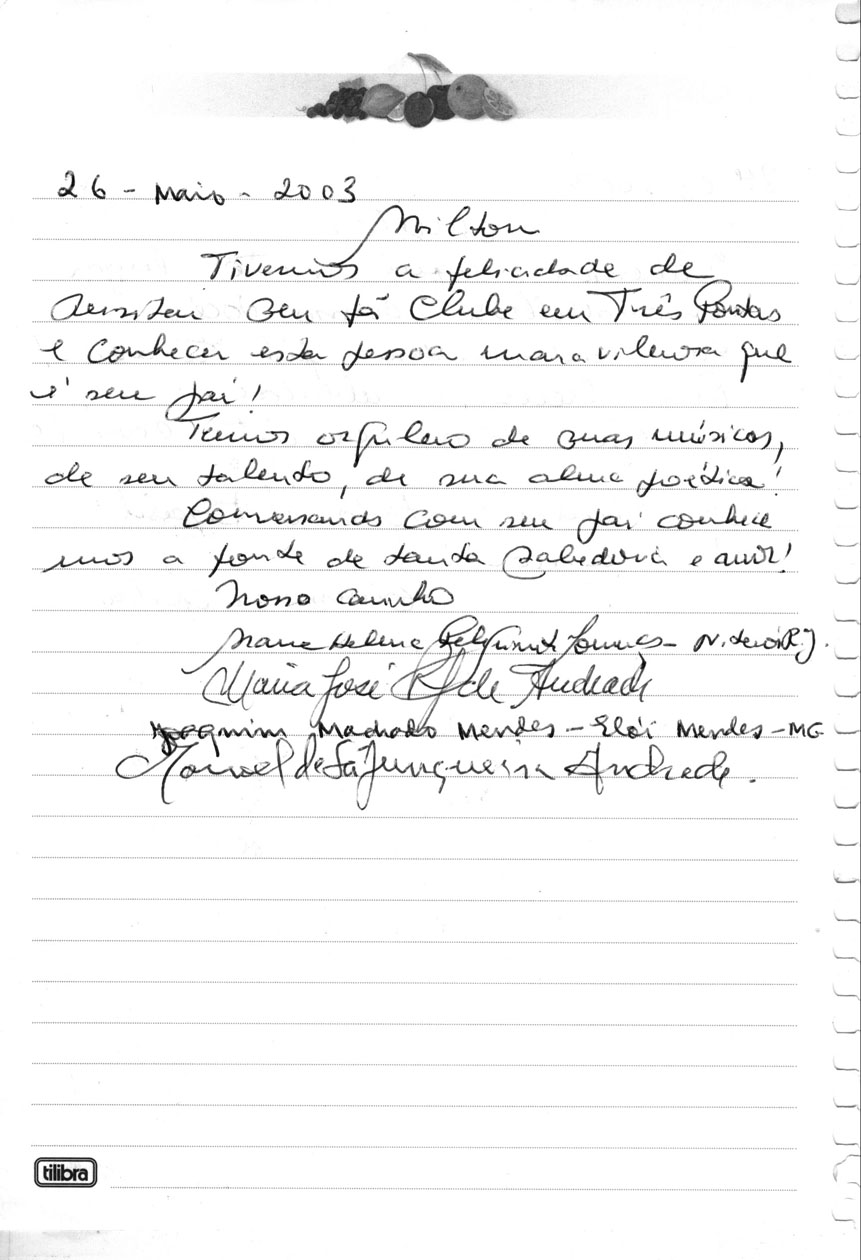 26 - Maio - 2003
Milton
Tivemos a felicidade de
seu fã Clube em Três Pontas
e conhecer esta pessoa maravilhosa que
é seu pai!
Temos orgulho de suas músicas,
de seu talento, de sua alma poética!
Conversando com seu pai conhece
mos a fonte de tanta sabedoria e amor!
Nosso carinho
Maria Helena - Niterói R.J.
Maria José de Andrade
Joaquim Machado Mendes - Elói Mendes - MG
Manoel de Sá Junqueira Andrade.
tilibra